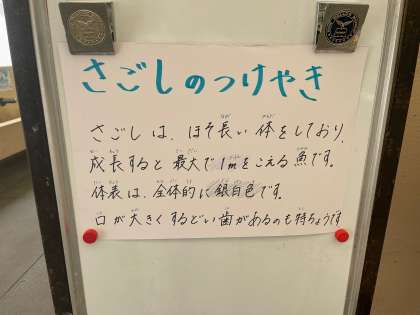 さごしのつけやき
さごしは、ほそ長い体をしており、
成長すると最大で1mをこえる魚です。
体表は、全体的に銀白色です。
口が大きくするどい歯があるのも特ちょうです